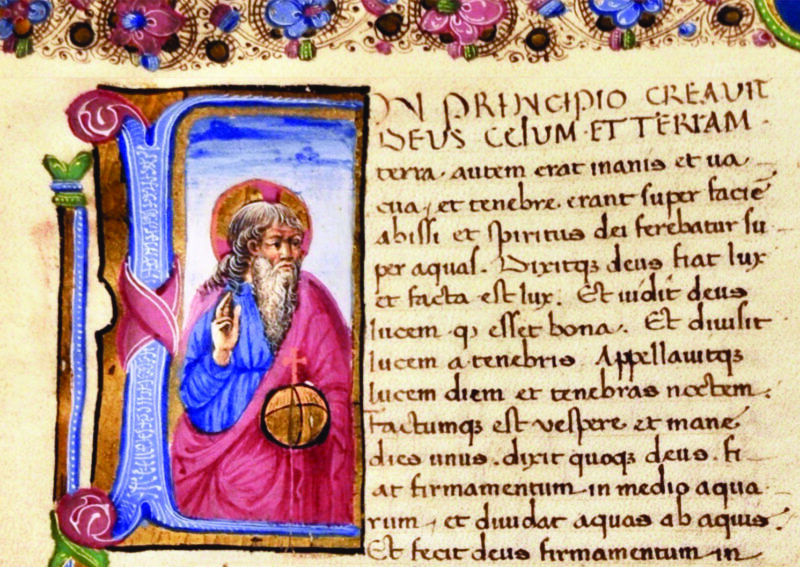 IN PRINCIPIO CREAVIT
DEUS CELUM · ET TERRAM ·
terra · autem erat inanis et ua
cua, et tenebre · erant super faciē
abissi et spiritus dei ferebatur su
per aquas. Dixitqꝫ deus fiat lux
et facta est lux. Et uidit deus
lucem · ꝙ esset bona. Et diuisit
lucem a tenebris Appellauitqꝫ
lucem diem et tenebras noctem.
Factumqꝫ est vespere et mane
dies unus. dixit quoqꝫ deus. fi
at firmamentum in medio aqua
rum, et diuidat aquas ab aquis.
Et fecit deus firmamentum in